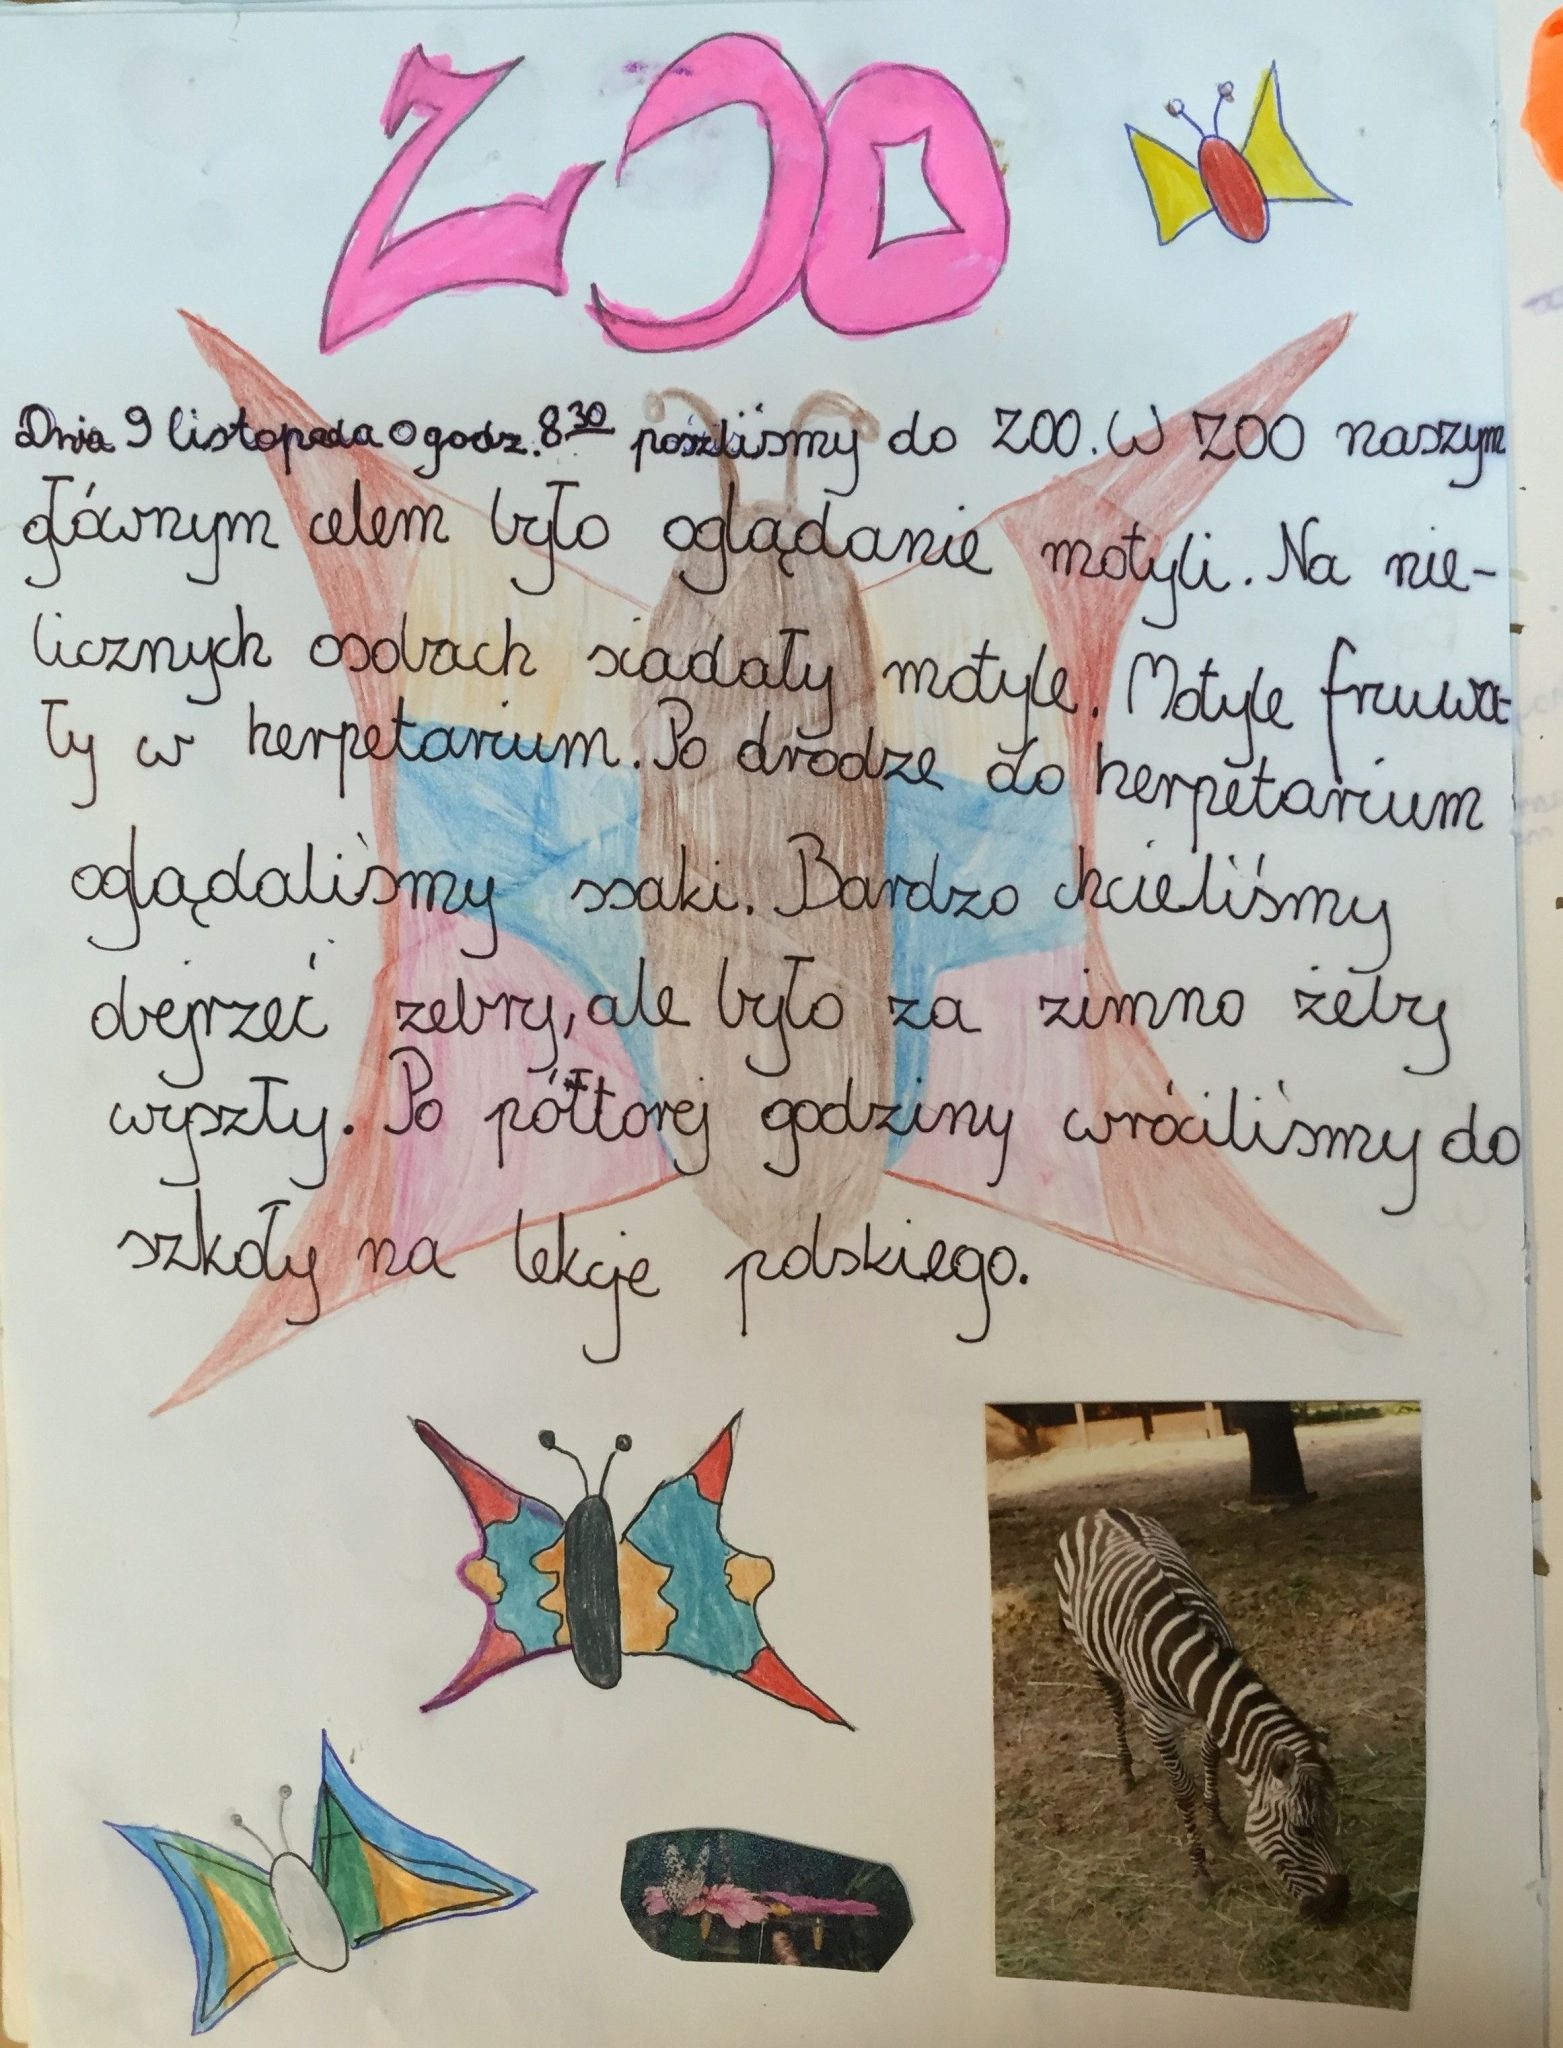 ZOO
Dnia 9 listopada o godz. 8³⁰ poszliśmy do ZOO. W ZOO naszym
głównym celem było oglądanie motyli. Na nie-
licznych osobach siadały motyle. Motyle fruwa-
ły w herpetarium. Po drodze do herpetarium
oglądaliśmy ssaki. Bardzo chcieliśmy
obejrzeć zebry, ale było za zimno żeby
wyszły. Po półtorej godziny wróciliśmy do
szkoły na lekcje polskiego.